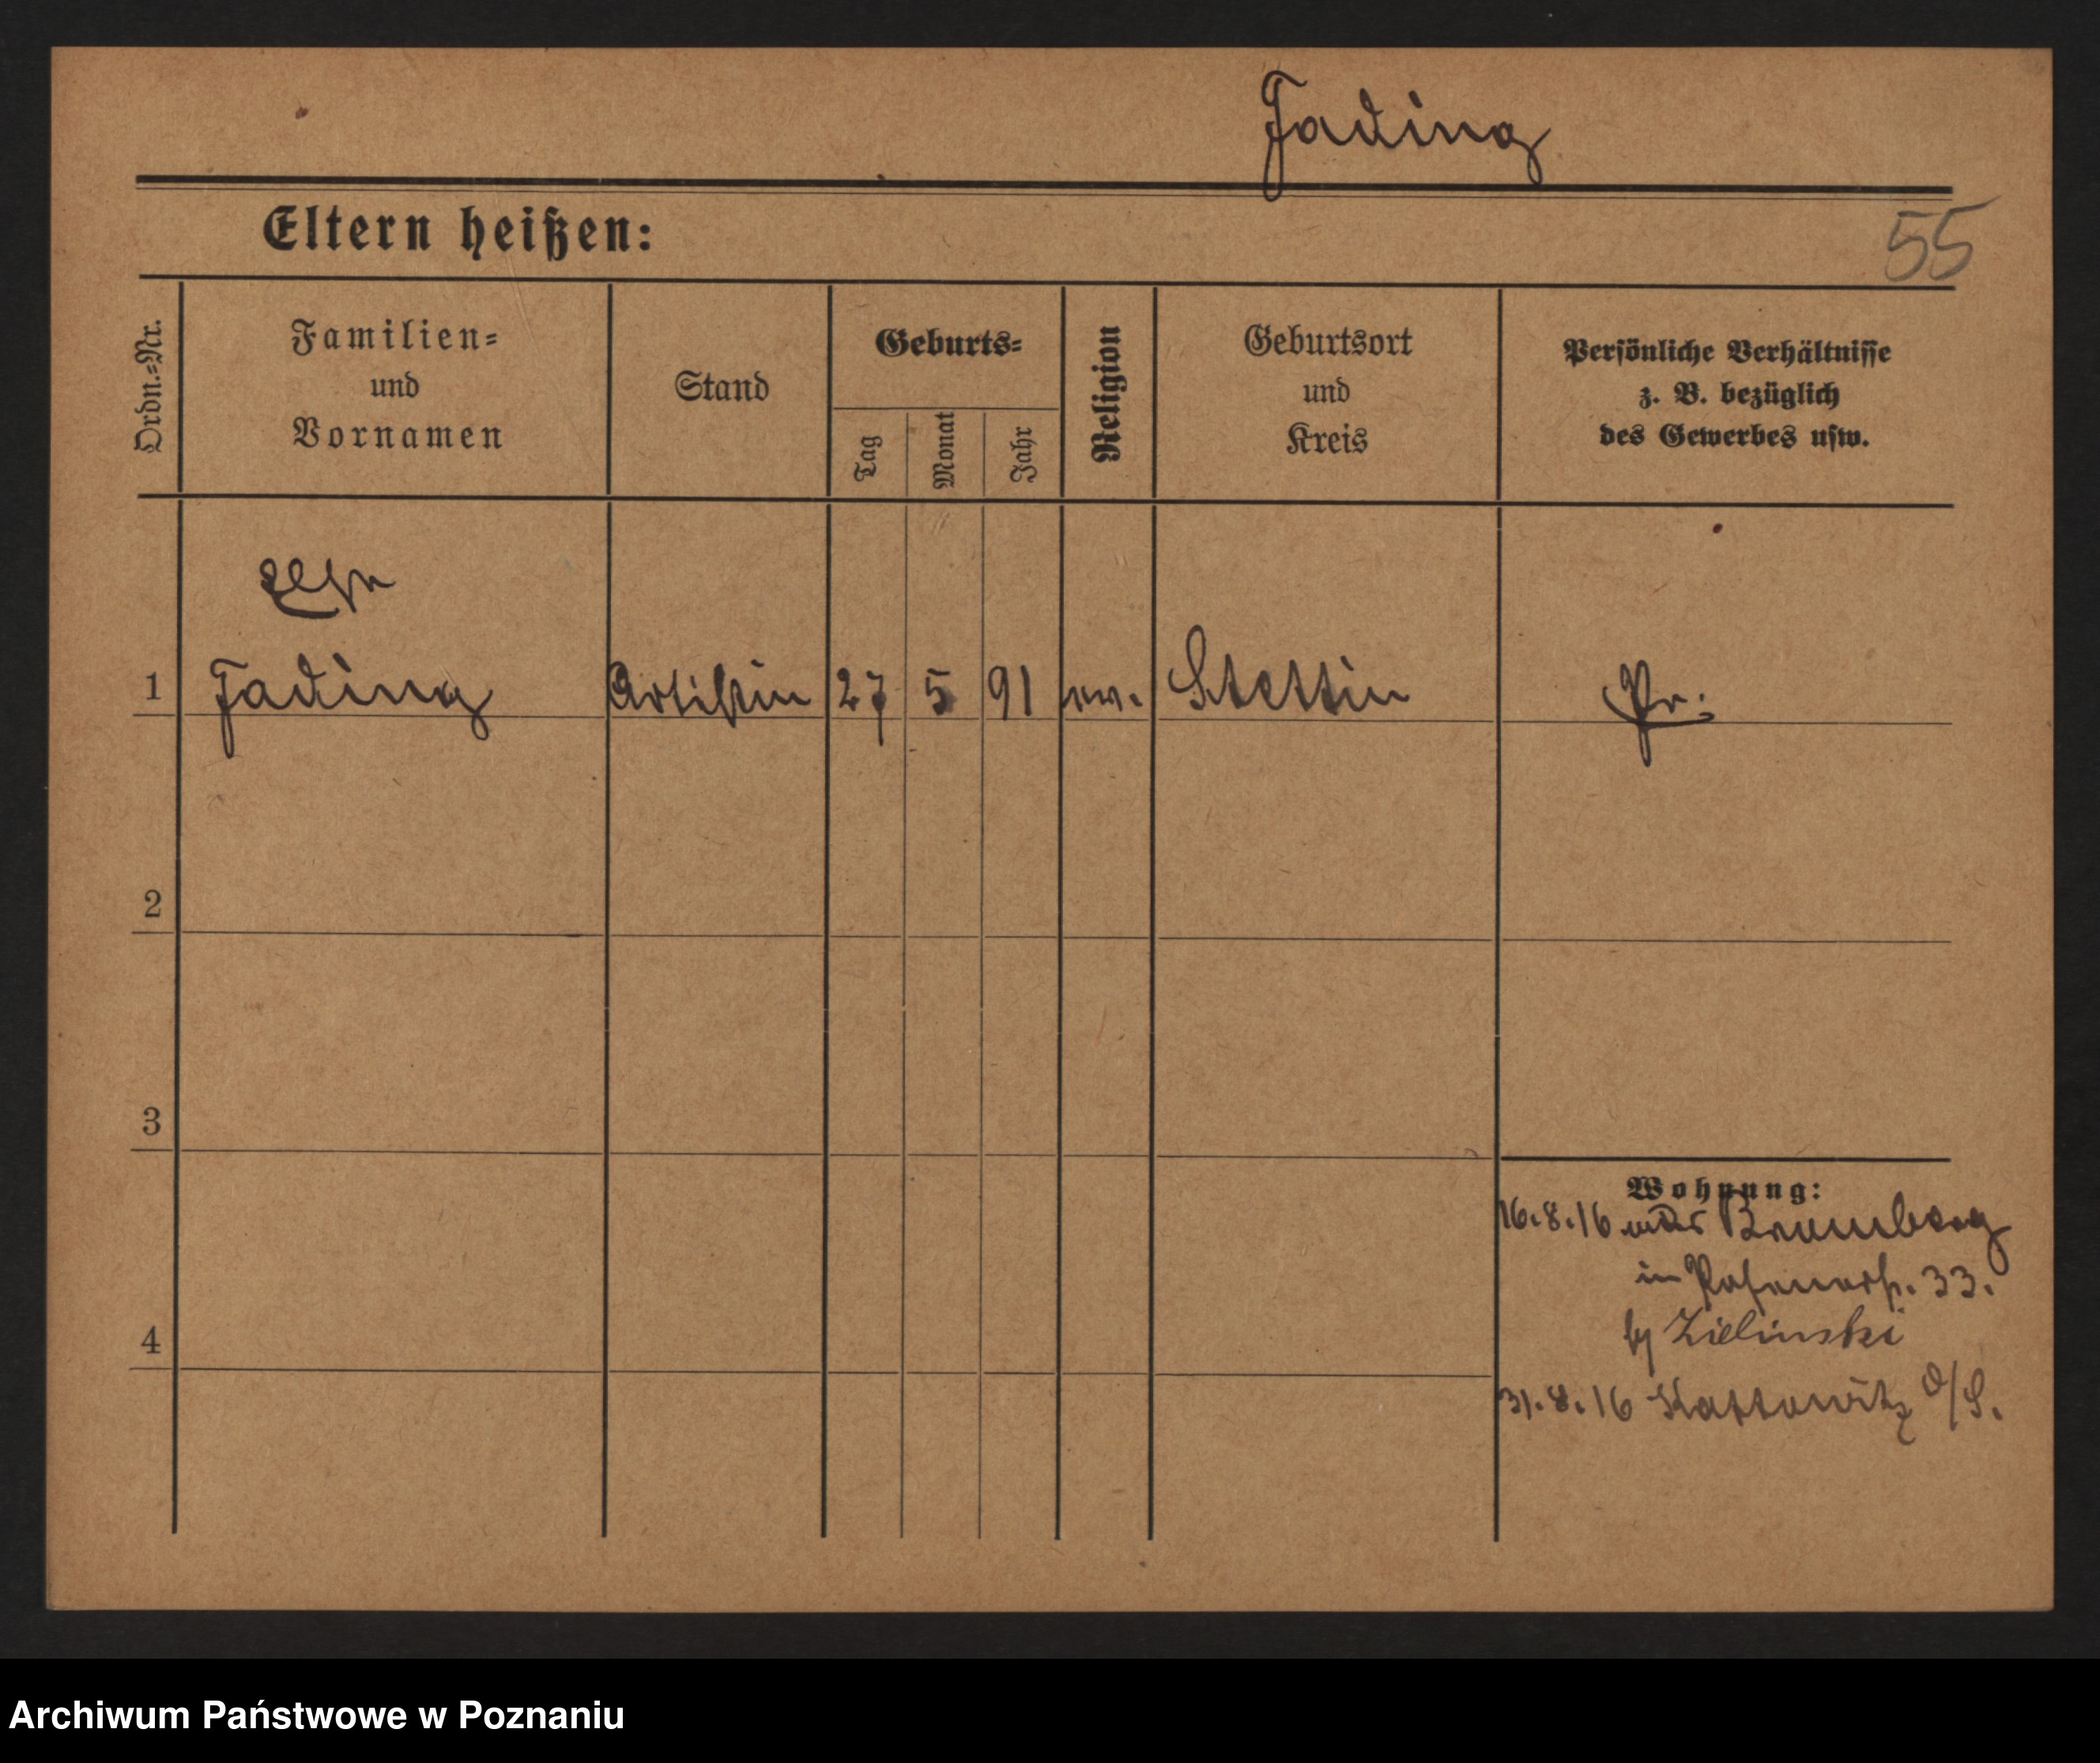 Fading
Eltern heißen:
55
Ordn.-Nr.
Familien-
und
Vornamen
Stand
Geburts-
Tag
Monat
Jahr
Religion
Geburtsort
und
Kreis
Persönliche Verhältnisse
z. B. bezüglich
des Gewerbes usw.
1 Fading Artistin 27 5 91 ev. Stettin Pr.
2
3
4
Wohnung:
16.8.16 Bromberg
in Posenerstr. 33.
by Zielinski
31.8.16 Kattowitz O/S.
Archiwum Państwowe w Poznaniu